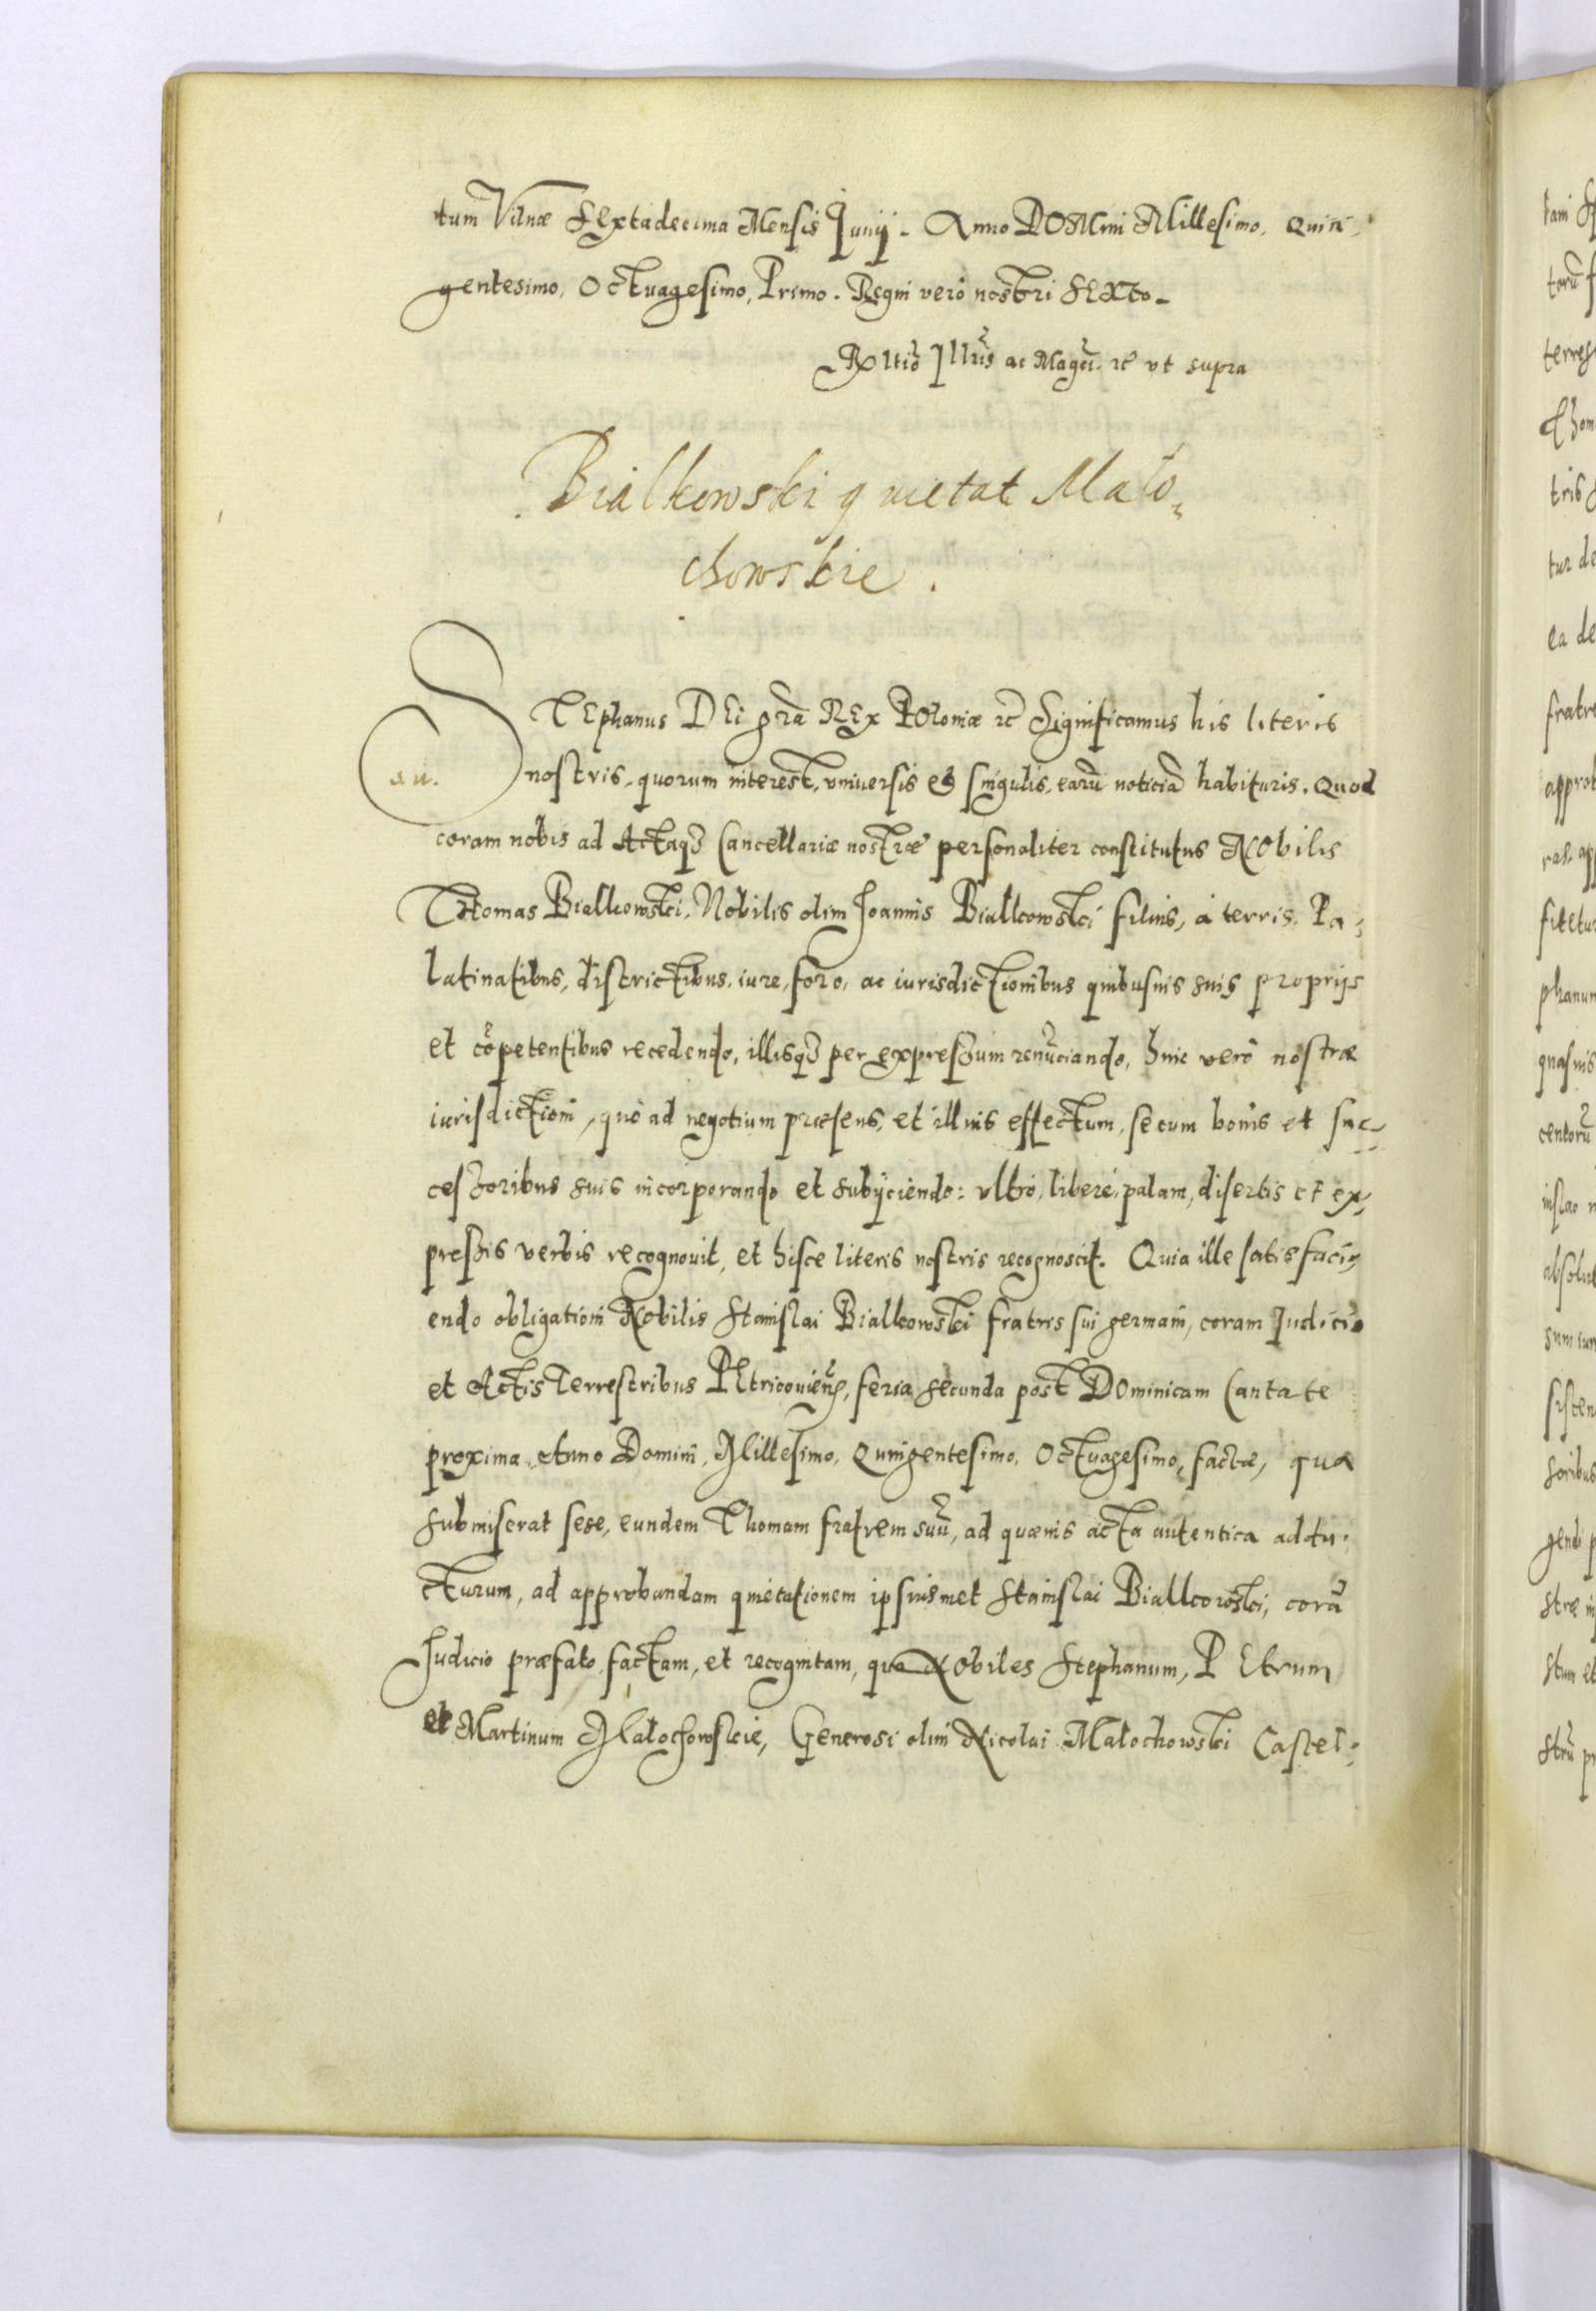 tum Vilnæ SExtadecima Mensis Junij. Anno DOMini Millesimo, Quin,
gentesimo, Octuagesimo, Primo. Regni verò nostri SExto.
Rltiõ Illris ac Magci. rc̃ vt supra
Bialkowski quietat Mało,
chowskie.
STEphanus DEi gr̃a REx POloniæ rc̃ Significamus his literis
nostris, quorum interest, vniuersis et singulis, earũ noticiã habituris. Quod
coram nobis ad Actaq3 Cancellariæ nostræ personaliter constitutus NObilis
THomas Bialkowski, Nobilis olim Joannis Bialkowski filius, à terris, Pa,
latinatibus, districtibus, iure, foro, ac iurisdictionibus quibusuis suis proprijs
et cõpetentibus recedendo, illisq3 per expressum renũciando, huic verò nostræ
iurisdictioni, quò ad negotium præsens, et illius effectum, se cum bonis et suc-
cessoribus suis incorporando et subijciendo: vltrò, liberè, palam, disertis et ex,
pressis verbis recognouit, et hisce literis nostris recognoscit. Quia ille satisfaci,
endo obligationi Nobilis Stanislai Bialkowski fratris sui germani, coram Judicio
et Actis Terrestribus PEtricouień, feria secunda post DOminicam Cantate
proxima, Anno Domini, Millesimo, Quingentesimo, Octuagesimo, factæ, qua
submiserat sese, eundem Thomam fratrem suũ, ad quæuis acta autentica addu,
cturum, ad approbandam quietationem ipsiusmet Stanislai Bialkowski, corã
Judicio præfato factam, et recognitam, qua Nobiles Stephanum, PEtrum
et Martinum Małochowskie, Generosi olim Nicolai Małochowski Castel,